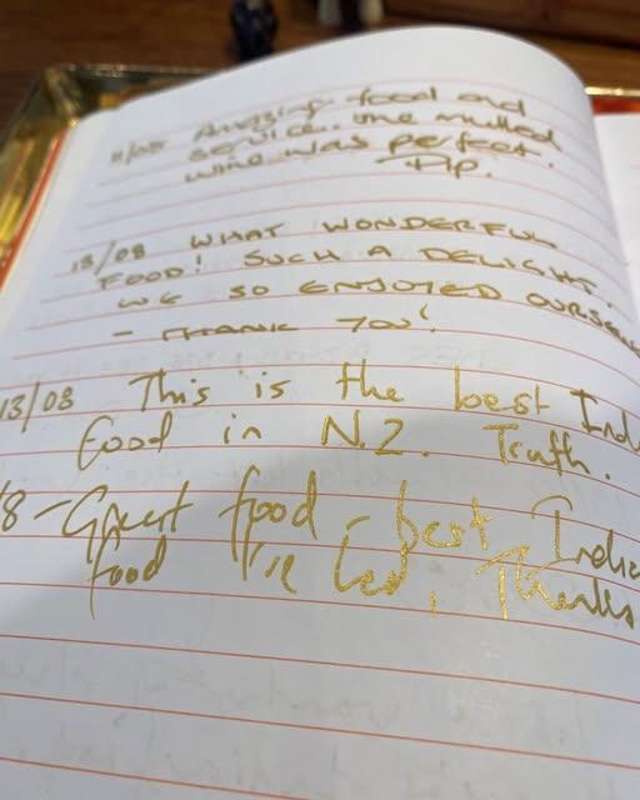 11/08 Amazing food and
service.. the mulled
wine was perfect.
18/08 WHAT WONDERFUL
FOOD! SUCH A DELIGHT.
WE SO ENJOYED OURSEL
- THANK YOU!
13/08 This is the best Indi
Food in N.Z. Truth.
/8 - Great food - best India
food in
Thanks